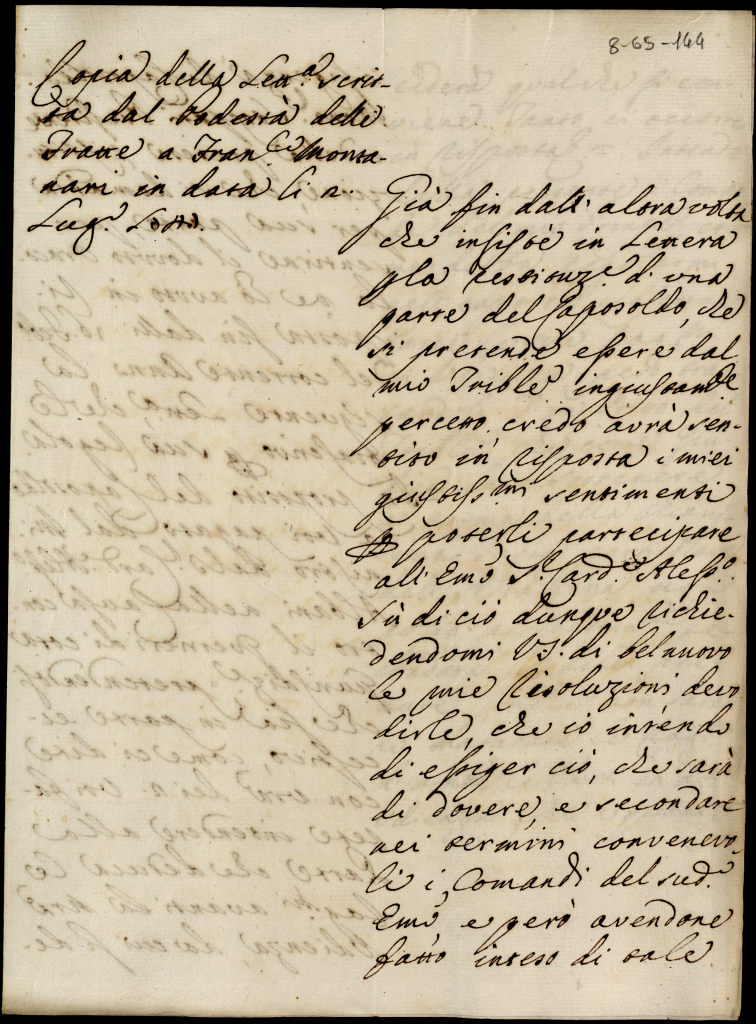 8-65-144
Copia della Lett.ª scrit-
ta dal Podestà delle
Tratte a Fran.co Monta-
nari in data li 2.
Lug.º
Già fin dall' altra volta
che insistè in Lettera
p la restituz.e d'una
parte del Caposoldo, che
si pretende essere dal
mio Trible ingiustam.te
percetto, credo avrà sen-
tito in risposta i miei
giustiss.mi sentimenti
p poterli partecipare
all' Emo S.r Card.e Aless.º
Sù di ciò dunque richie-
dendomi VS. di bel nuovo
le mie risoluzioni devo
dirle, che io intendo
di essiger ciò, che sarà
di dovere, e secondare
nei termini convenevo-
li i Comandi del sud.º
Emo, e però avendone
fatto inteso di tale